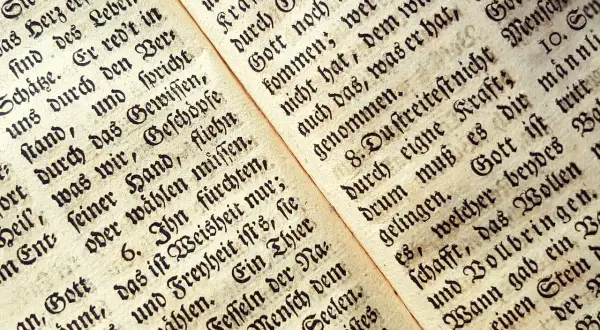 Das Herz er
sind des Leben
Schätze. Er red't in
uns durch den Ver-
stand, und spricht
durch das Gewissen,
was wir, Geschöpfe
seiner Hand, fliehn
oder wählen müssen.
6. Ihn fürchten,
das ist Weisheit nur;
und Freyheit ists, sie
wählen. Ein Thier
Fesseln der Na-
Mensch dem
Seelen.
ort
Heil,
m Ent-
an, Gott
durch
Gott noch
kommen; we
nicht hat, dem wi
auch das, was er hat,
genommen.
8. Du streitest nicht
durch eigne Kraft;
drum muß es dir
gelingen. Gott ist
es, welcher beydes
schafft, das Wollen
und Vollbringen.
Wann gab ein Va
einen Stein de
Gott
Mensch
10. So
männli
tritt